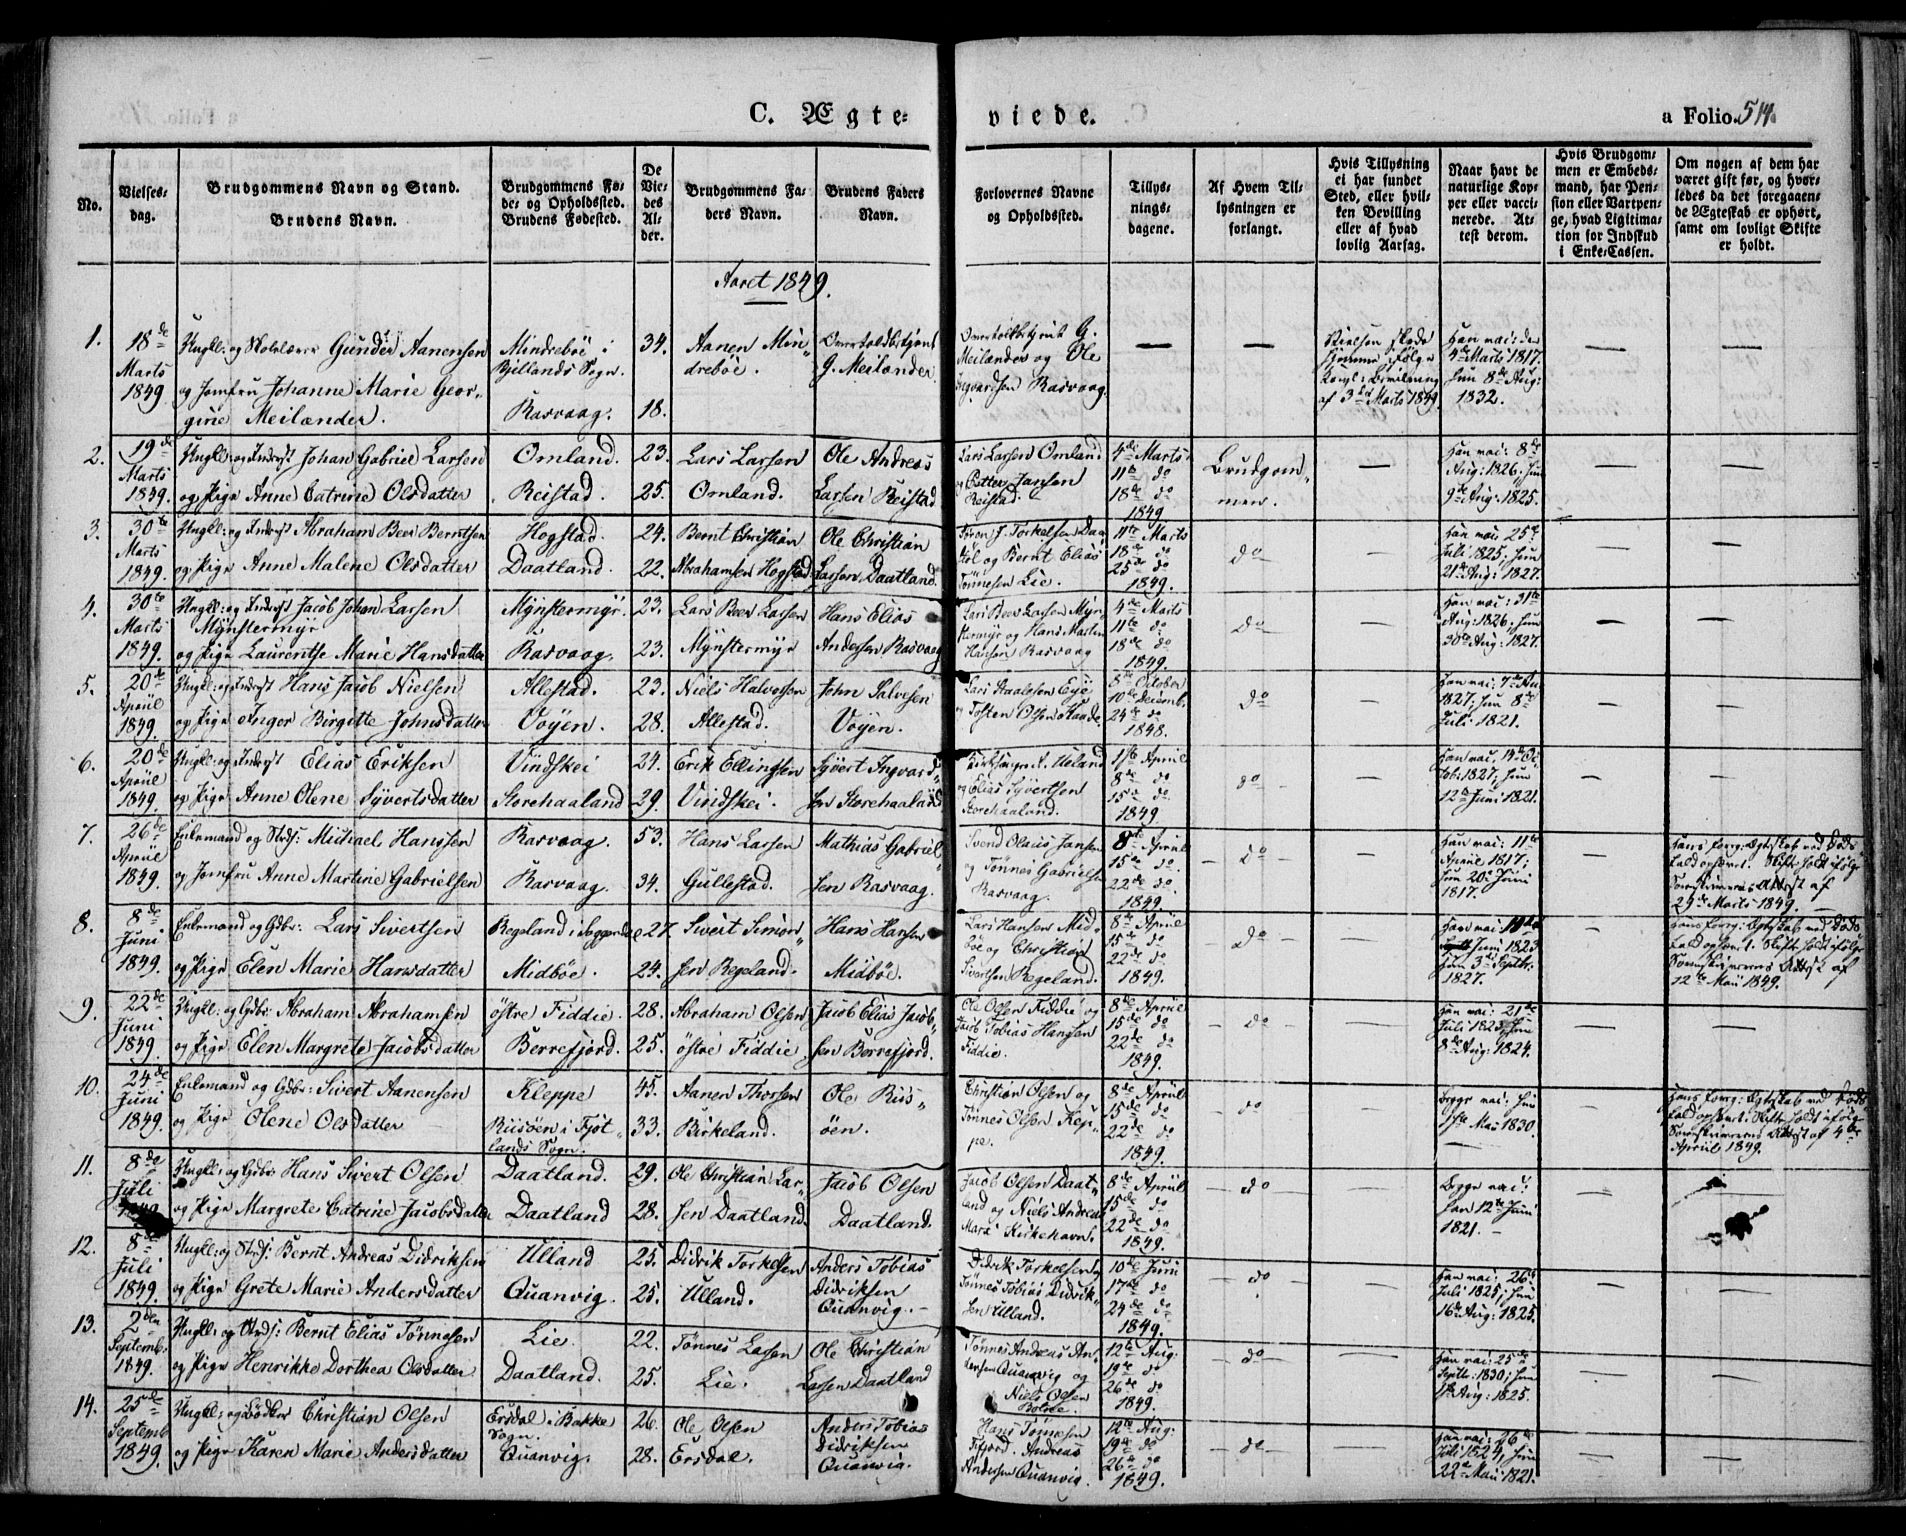 C. Ægte-
viede.
a Folio. 514.
No.
Vielses-
dag.
Brudgommens Navn og Stand.
Brudens Navn.
Brudgommens Fø-
de- og Opholdssted.
Brudens Fødested.
De
Vie-
des
Al-
der.
Brudgommens Fa-
ders Navn.
Brudens Faders
Navn.
Forlovernes Navne
og Opholdssted.
Tillys-
nings-
dagene.
Af Hvem Til-
lysningen er
forlangt.
Hvis Tillysning
ei har fundet
Sted, eller hvil-
ken Bevilling
eller af hvad
lovlig Aarsag.
Naar havt de
naturlige Kop-
per eller vacci-
nerede. At-
test derom.
Hvis Brudgom-
men er Embeds-
mand, har Pen-
sion eller Vartpen-
ge, hvad Ligitima-
tion for Indskud
i Enke-Cassen.
Om nogen af dem har
været gift før, og hvor-
ledes da det foregaaen-
de Ægteskab er ophørt,
samt om lovligt Skifte
er holdt.
Aaret 1849.
1.
18de
Marts
1849
Ungkl: og Skolelærer Gunder Aanensen
og Jomfru Johanne Marie Geor-
gine Meilænder.
Mindrebøe i
Bjellands Sogn.
Rasvaag.
34.
18.
Aanen Min-
drebøe.
Overtoldbetjent
G. Meilænder
Overtoldbetjent G.
Meilænder og Ole
Ingvardsen Rasvaag.
Vielsen skede
hjemme ifølge
Kongl: Bevilning
af 3die Marts 1849.
Han vac: den
4de Marts 1817.
Hun 8de Aug:
1832.
2.
19de
Marts
1849.
Ungkl: og Inderst Johan Gabriel Larsen
og Pige Anne Catrine Olsdatter
Omland.
Reistad.
23.
25.
Lars Larsen
Omland.
Ole Andreas
Larsen Reistad
Lars Larsen Omland
og Petter Jansen
Reistad.
4de Marts
11te do
18de do
1849
Brudgom-
men.
Han vac: 8de
Aug: 1826, Hun
9de Aug: 1825.
3.
30te
Marts
1849.
Ungkl: og Inderst Abraham Beer Berntsen
og Pige Anne Malene Olsdatter
Hogstad.
Daatland.
24.
22.
Bernt Christian
Abrahamsen Hogstad
Ole Christian
Larsen Daatland.
og Bernt Elias
Tönnesen Lie.
11te Marts
18de do
25de do
1849.
do
Han vac: 25de
Juli 1825. Hun
21de Aug: 1827.
4.
30te
Marts
1849.
Ungkl: og Inderst Jacob Johan Larsen
Mynstermyr
og Pige Laurentse Marie Hansdatter
Mynstermyr.
Rasvaag.
23.
23.
Lars Beer Larsen
Mynstermyr
Hans Elias
Andersen Rasvaag
Lars Beer Larsen Myn-
stermyr og Hans Martin
Hansen Rasvaag
4de Marts
11te do
18de do
1849.
do
Han vac: 31te
Aug: 1826, Hun
30te Aug: 1827.
5.
20de
April
1849.
Ungkl: og Inderst Hans Jacob Nielsen
og Pige Inger Birgitte Johnsdatter
Allestad.
Vøyen.
23.
28.
Niels Halvorsen
Allestad.
John Salvesen
Vøyen.
Lars Staalesen Eye
og Tosten Olsen Haade.
8de October
10de Decemb.
24de do
1848.
do
1827; Hun 8de
Juli 1821.
6.
20de
April
1849.
Ungkl: og Inderst Elias Eriksen
og Pige Anne Olene Syvertsdatter
Vindskei
Storehaaland
24.
29.
Erik Ellingsen
Vindskei.
Syvert Ingvard-
sen Storehaaland
og Elias Syvertsen
Storehaaland.
1ste April
8de do
15de do
1849.
do
1827, Hun
12te Juni 1821.
7.
26de
April
1849.
Enkemand og Strds: Michael Hanssen
og Jomfru Anne Martine Gabrielsen
Rasvaag.
Rasvaag.
53.
34.
Hans Larsen
Gullestad.
Mathias Gabriel-
sen Rasvaag.
Svend Olaus Jansen
og Tønnes Gabrielsen
Rasvaag.
8de April
15de do.
22de do
1849.
do
Han vac: 11te
April 1817;
Hun 20de Juni
1817.
Hans forrg: Egteskab ved Døds-
fald ophørt. Skifte holdt ifølge
Sorenskriverens Attest af
29de Marts 1849.
8.
8de
Juni
1849.
Enkemand og Gdbr: Lars Sivertsen
og Pige Elen Marie Hansdatter
Regeland i Soggendal
Midbøe.
27.
24.
Sivert Simon-
sen Regeland.
Hans Hansen
Midbøe.
Lars Hansen Mid-
bøe og Christian
Sivertsen Regeland.
8de April
15de do
22de do
1849.
do
Juni 1823
Hun 3die Septbr.
1827.
Hans forrg: Egteskab ved Døds-
fald ophørt. Skifte holdt ifølge
Sorenskriverens Attest af
12te Mai 1849.
9.
22de
Juni
1849.
Ungkl: og Gdbr: Abraham Abrahamsen
og Pige Elen Margrete Jacobsdatter
østre Fiddie.
Berrefjord.
28.
25.
Abraham Olsen
østre Fiddie
Jacob Elias Jacob-
sen Berrefjord.
Ole Olsen Fiddie og
Jacob Tobias Hansen
Fiddie.
8de April
15de do
22de do
1849.
do
Han vac: 21de
Juli 1823, Hun
8de Aug: 1824.
10.
24de
Juni
1849.
Enkemand og Gdbr: Sivert Aanensen
og Pige Olene Olsdatter
Kleppe
Riisøen i Fjot-
lands Sogn.
45.
33.
Aanen Thorsen
Birkeland.
Ole Riis-
øen.
Christian Olsen og
Tønnes Olsen Kep-
pe.
8de April
15de do
22de do
1849.
do
Begge vac: Hun
1ste Mai 1830.
Hans forrg: Egteskab ved Døds-
fald ophørt. Skifte holdt ifølge
Sorenskriverens Attest af 4de
April 1849.
11.
8de
Juli
1849
Ungkl: og Gdbr: Hans Sivert Olsen
og Pige Margrete Catrine Jacobsdatter
Daatland.
Daatland
29.
28.
Ole Christian Lar-
sen Daatland.
Jacob Olsen
Daatland.
Jacob Olsen Daat-
land og Niels Andreas
Mari Kirkehavn.
8de April
15de do
22de do
1849.
do
Begge vac:
Han 12te Juni
1821.
12.
8de
Juli
1849.
Ungkl: og Strds: Bernt Andreas Didriksen
og Pige Grete Marie Andersdatter
Ulland
Quanvig.
25.
25.
Didrik Torkelsen
Ulland.
Anders Tobias
Didriksen
Quanvig.
Didrik Torkelsen
Tönnes Tobias Didrik-
sen Ulland.
10de Juni
17de do
24de do
1849.
do
Han vac: 26de
Juli 1825; Hun
16de Aug: 1825.
13.
2den
Septemb.
1849.
Ungkl: og Strds: Bernt Elias Tönnesen
og Pige Henrikke Dorthea Olsdatter
Lie.
Daatland.
22.
25.
Tönnes Larsen
Lie.
Ole Christian
Larsen Daatland
Tönnes Andreas An-
dersen Quanvig og
Niels Olsen
12te Aug.
19de do
26de do
1849.
do
Han vac: 25de
Septbr: 1830; Hun
1ste Aug: 1825.
14.
25de
Septemb
1849.
Ungkl: og Bødker Christian Olsen
og Pige Karen Marie Andersdatter
Ersdal i Bakke
Sogn.
Quanvig.
26.
28.
Ole Olsen
Ersdal.
Anders Tobias
Didriksen
Quanvig.
Hans Tönnesen
Andreas
Andersen Quanvig.
12te Aug:
19de do
26de do
1849.
do
Han vac: 26de
Juli 1824, Hun
22de Mai 1821.